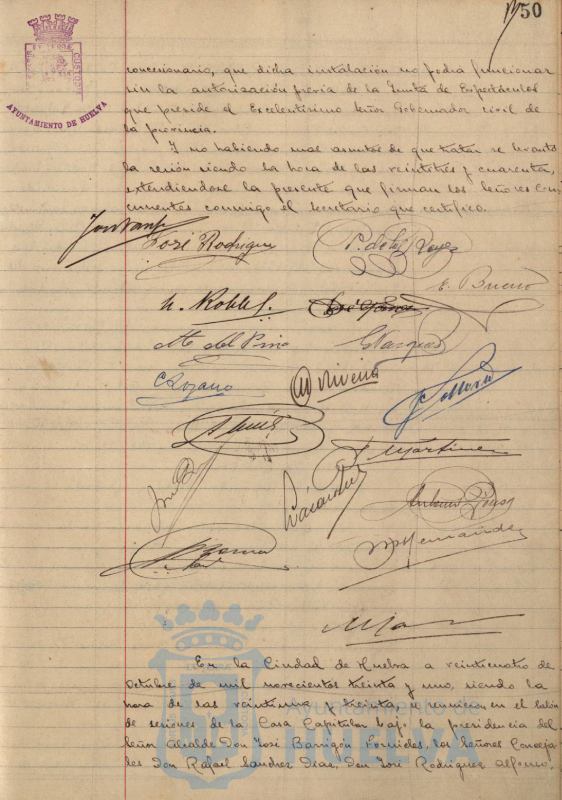 50
AYUNTAMIENTO DE HUELVA
concesionario, que dicha instalación no podrá funcionar
sin la autorización previa de la Junta de Espectáculos
que preside el Excelentísimo Señor Gobernador civil de
la provincia.
Y no habiendo mas asuntos de que tratar se levantó
la sesión siendo la hora de las veintitres y cuarenta,
extendiendose la presente que firman los Señores Con-
currentes conmigo el Secretario que certifico.
José Rodriguez
P. de los Reyes
E. Bueno
M. Robles
M. del Pino
E. Vazquez
C. Lozano
Martinez
Antonio
Hernández
En la Ciudad de Huelva a veinticuatro de
Octubre de mil novecientos treinta y uno, siendo la
hora de las veintiuna y treinta, se reunieron en el Salón
de sesiones de la Casa Capitular bajo la presidencia del
Señor Alcalde Don José Barrigón Fornieles, los Señores Conceja-
les Don Rafael Sanchez Diaz, Don José Rodriguez Alfonso,
Ayuntamiento de
HUELVA